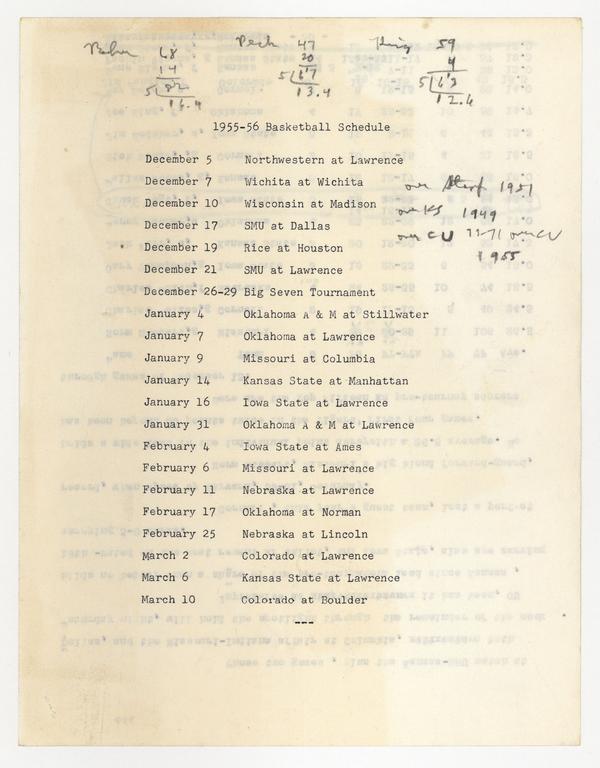 Peck King
68 47 59
14 20 4
5 82 5 67 5 63
16.4 13.4 12.6
1955-56 Basketball Schedule
December 5 Northwestern at Lawrence
December 7 Wichita at Wichita
over 1951
December 10 Wisconsin at Madison
over KS 1949
December 17 SMU at Dallas
over CU 72-71 over CU
December 19 Rice at Houston
1955
December 21 SMU at Lawrence
December 26-29 Big Seven Tournament
January 4 Oklahoma A & M at Stillwater
January 7 Oklahoma at Lawrence
January 9 Missouri at Columbia
January 14 Kansas State at Manhattan
January 16 Iowa State at Lawrence
January 31 Oklahoma A & M at Lawrence
February 4 Iowa State at Ames
February 6 Missouri at Lawrence
February 11 Nebraska at Lawrence
February 17 Oklahoma at Norman
February 25 Nebraska at Lincoln
March 2 Colorado at Lawrence
March 6 Kansas State at Lawrence
March 10 Colorado at Boulder
---